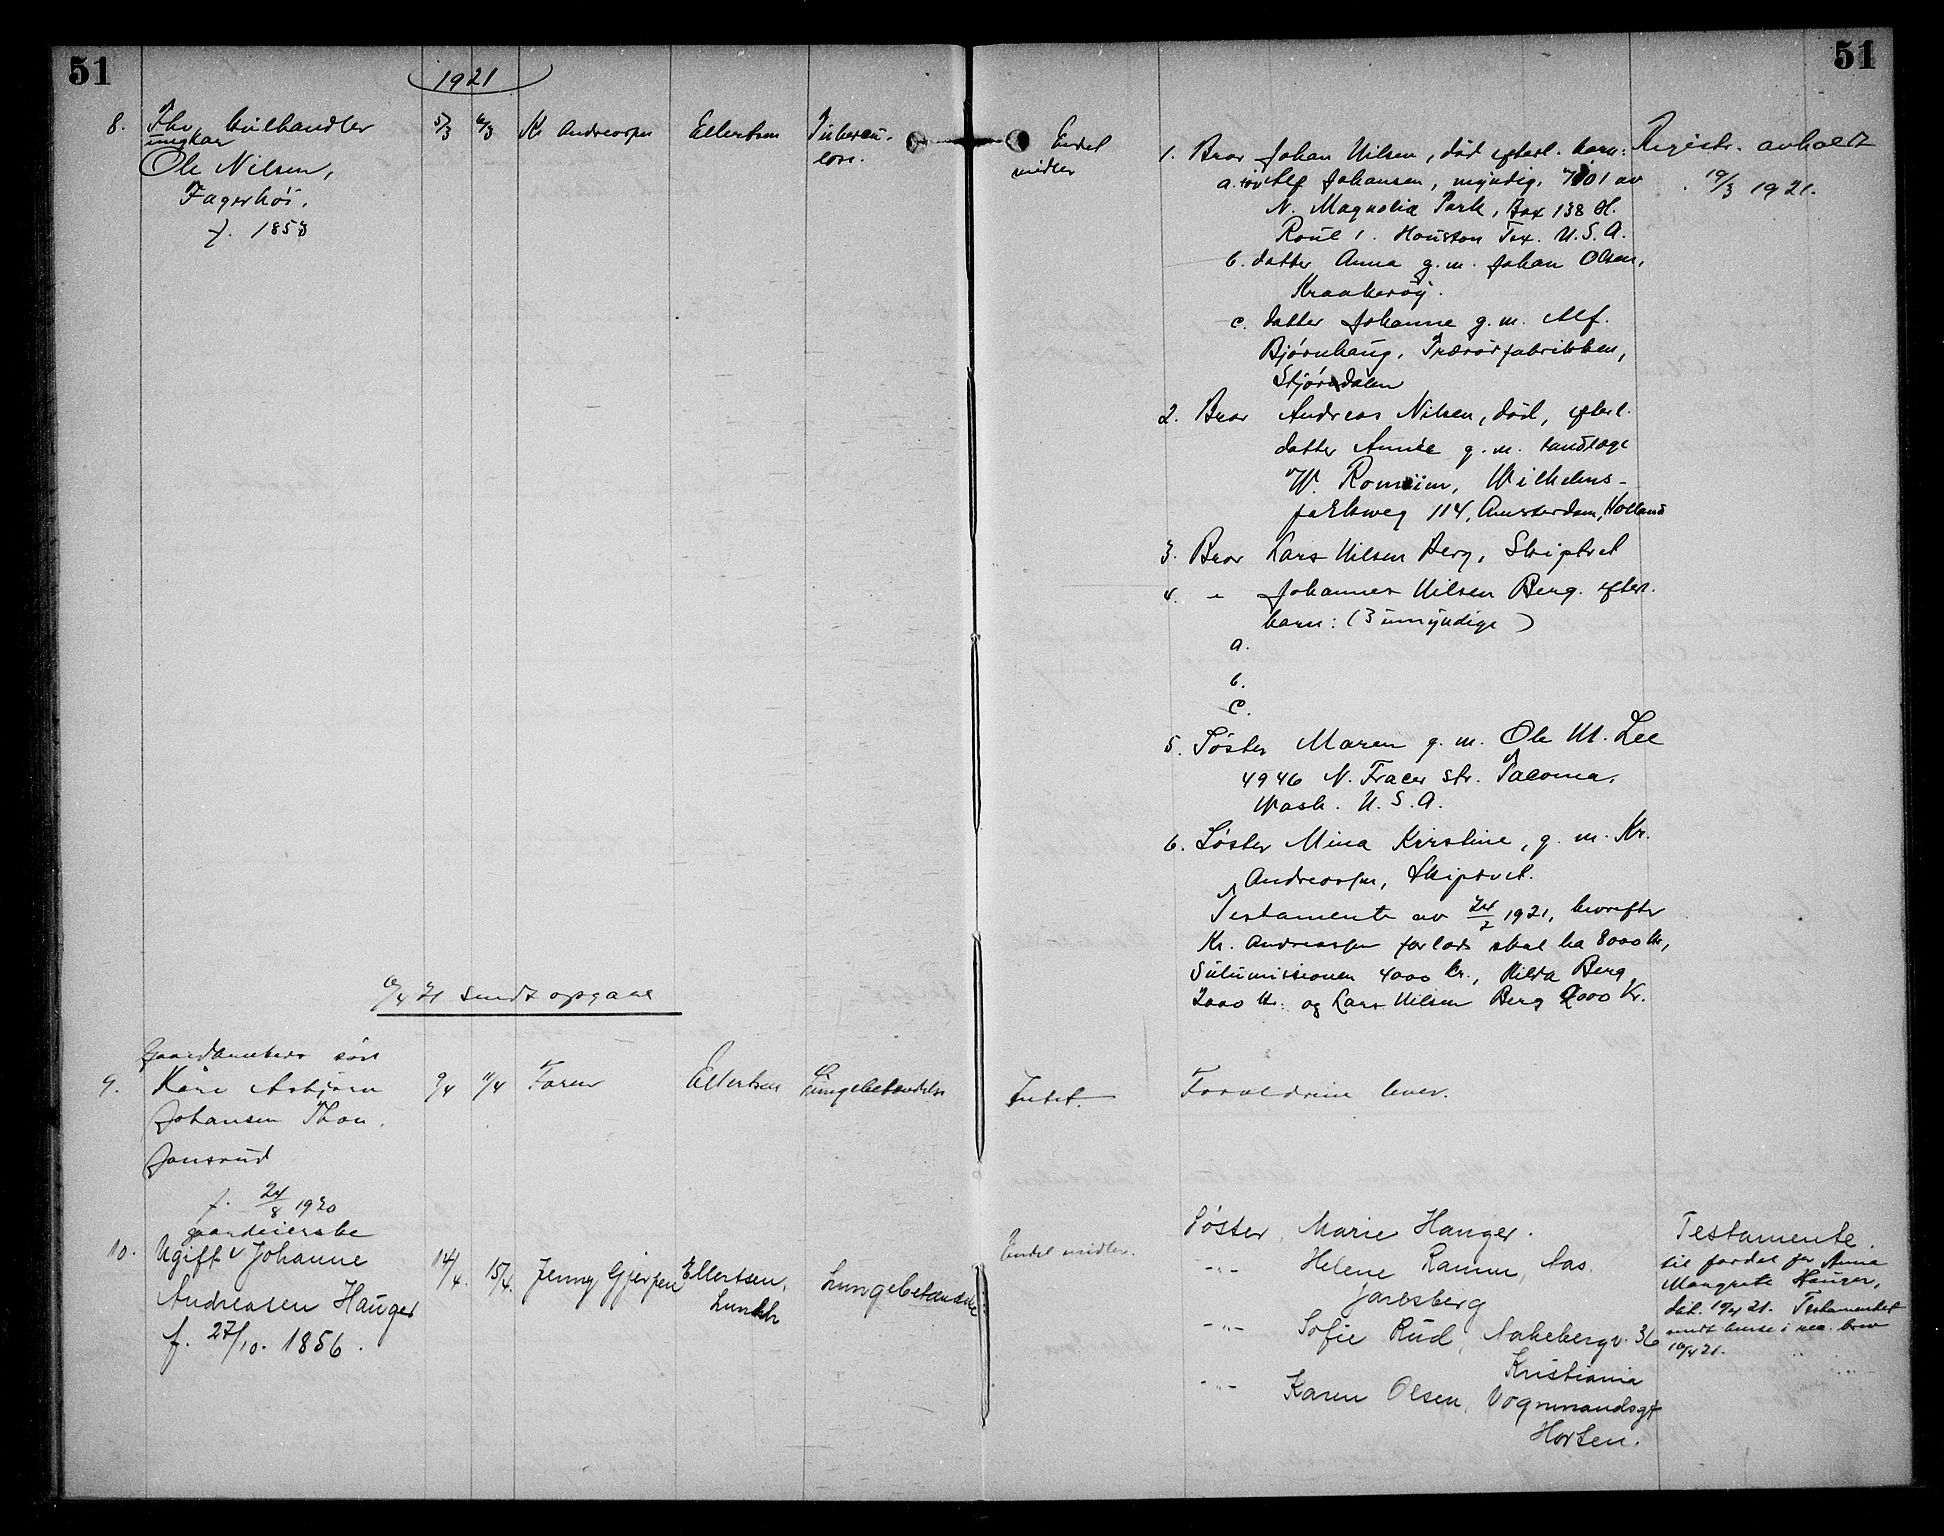 51
1921
51
8. Fhv. hvilhandler
ungkar
Ole Nilsen,
Fagerhöi.
f. 1853
5/3 6/3 Kr Andreassen Ellertsen Tubercu-
lose.
Endel
midler
1. Bror Johan Nilsen, död efterl. barn:
a. sön Alf Johansen, myndig, 7101 av
N. Magnolia Park, Box 138 H.
Route 1. Houston Tex. U.S.A.
b. datter Anna g.m. Johan Olsen,
Kraakeröy.
c. datter Johanne g.m. Alf.
Bjørnhaug, Trærörfabrikken,
Stjørdalen
2. Bror Andreas Nilsen, död, efterl.
datter Annie g.m. tandlæge
W. Romijn, Wilhelms-
parkweg 114, Amsterdam, Holland
3. Bror Lars Nilsen Berg, Skiptvet
4. " Johannes Nilsen Berg. efterl.
barn: (3 umyndige)
a.
b.
c.
5. Søster Maren g.m. Ole M. Lee
4946 N. Fracer str. Tacoma,
Wash. U.S.A.
6. Søster Mina Kirstine, g.m. Kr.
Andreassen, Skiptvet.
Testamente av 24/2 1921, hvorefter
Kr. Andreassen forlods skal ha 8000 kr,
Sulumissionen 4000 kr., Hilda Berg
2000 kr. og Lars Nilsen Berg 2000 Kr.
Registr. avholdt
19/3 1921.
6/4 21 sendt opgave
Gaardarbeiders søn
9. Kåre Asbjørn
Johansen Thon.
Jonsrud
f. 24/8 1920
9/4 11/4 Faren Ellertsen Lungebetændelse
Intet.
Forældrene lever.
gaardeierske
10. Ugift Johanne
Andreasen Hauger
f. 27/10. 1856.
14/4. 15/4. Jenny Gjerpen Ellertsen, Lungebetændelse
Lunde
Endel midler.
Søster, Marie Hauger.
-"- Helene Ramm, Aas.
Jarlsberg
-"- Sofie Rud, Nakebergv. 36
Kristiania
-"- Karen Olsen, Vognmandsgt
Horten.
Testamente
til fordel for Anna
Margrete Hauger,
dat. 19/4 21. Testamentet
sendt i rec. brev
19/4 21.